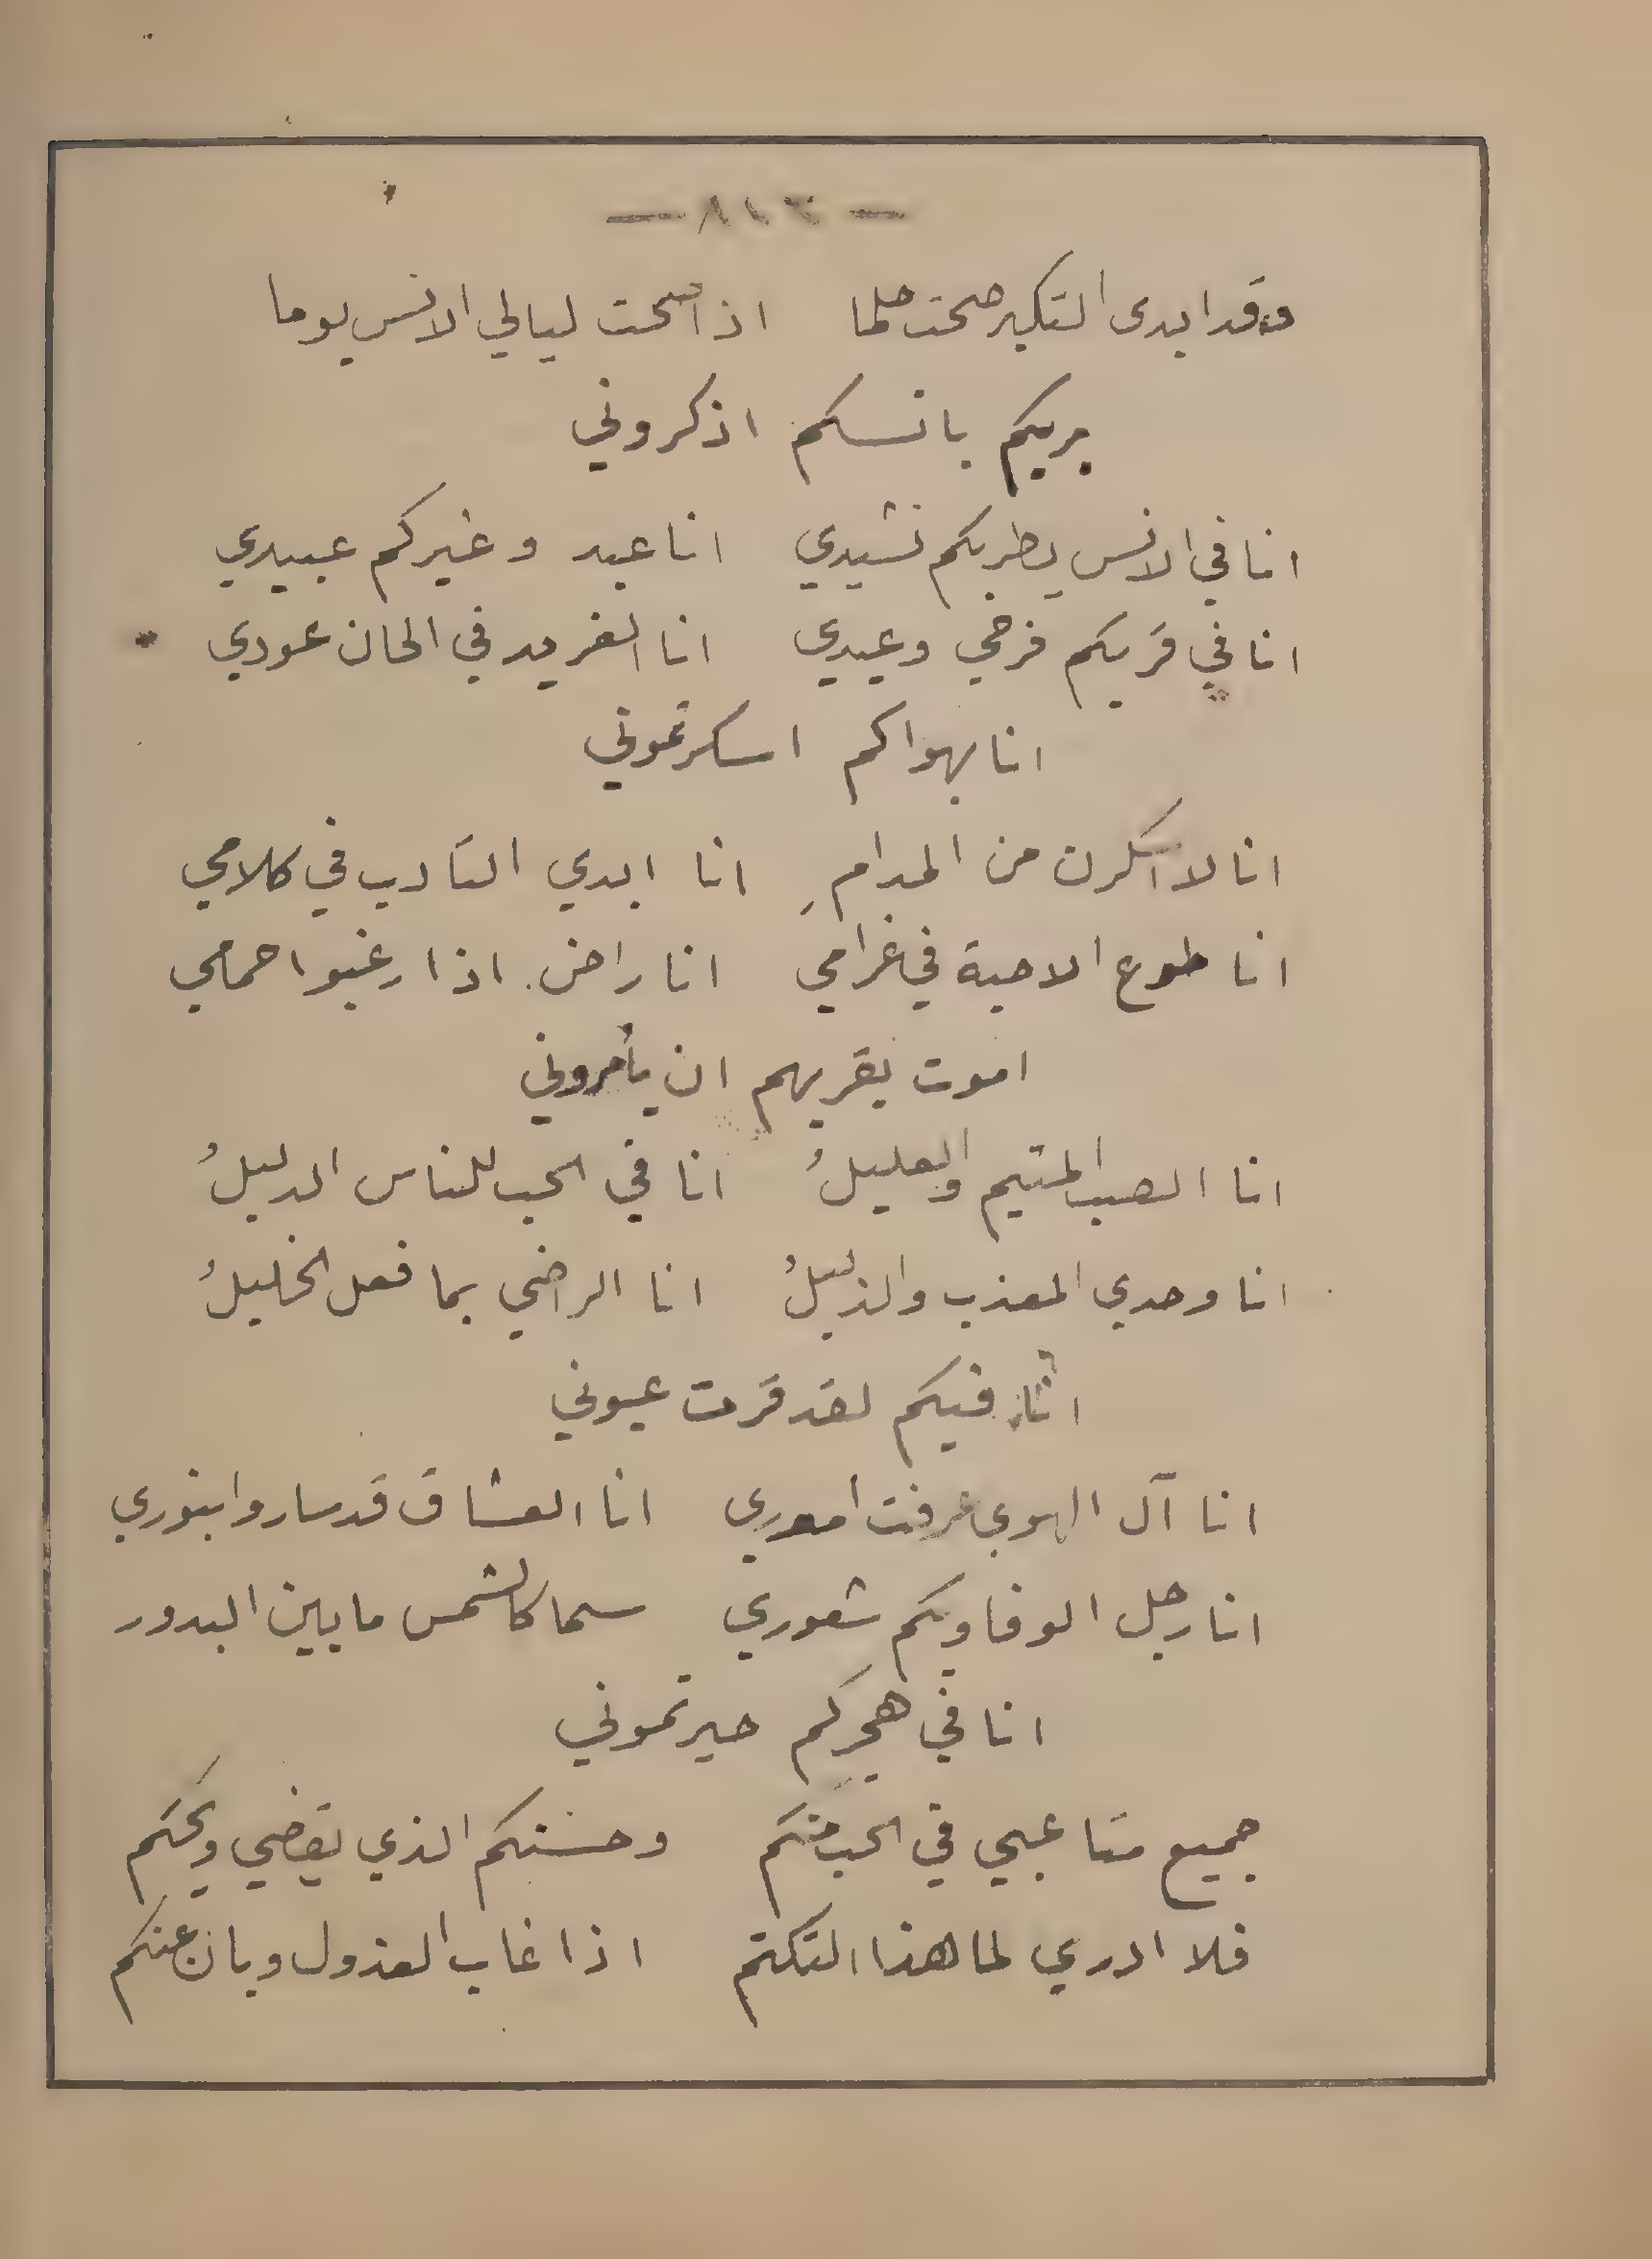 — ٢١٨ —
وقد ابدى التكبر صحت حلما اذا صحت ليالي الانس يوما
بربكم بانسكم اذكروني
انا في الانس يطربكم نشيدي انا عبد وغيركم عبيدي
انا في قربكم فرحي وعيدي انا الغريد في الحان عودي
انا بهواكم اسكرتموني
انا لا اسكرن من المدامِ انا ابدي التادب في كلامي
انا طوع الاحبة في غرامي انا راض اذا رغبوا حمامي
اموت بقربهم ان يأمروني
انا الصب المتيم والعليلُ انا في الحب للناس الدليلُ
انا وحدي المعذب والذليلُ انا الراضي بما فعل الخليلُ
انا فيكم لقد قرت عيوني
انا آل الهوى عرفت أموري انا العشاق قد ساروا بنوري
انا رجل الوفا وبكم شعوري سما كالشمس ما بين البدور
انا في هجركم حيرتموني
جميع متاعبي في الحب منكم وحسنكم الذي يقضي ويحكم
فلا ادري لما هذا التكتم اذا غاب العذول وبان عنكم